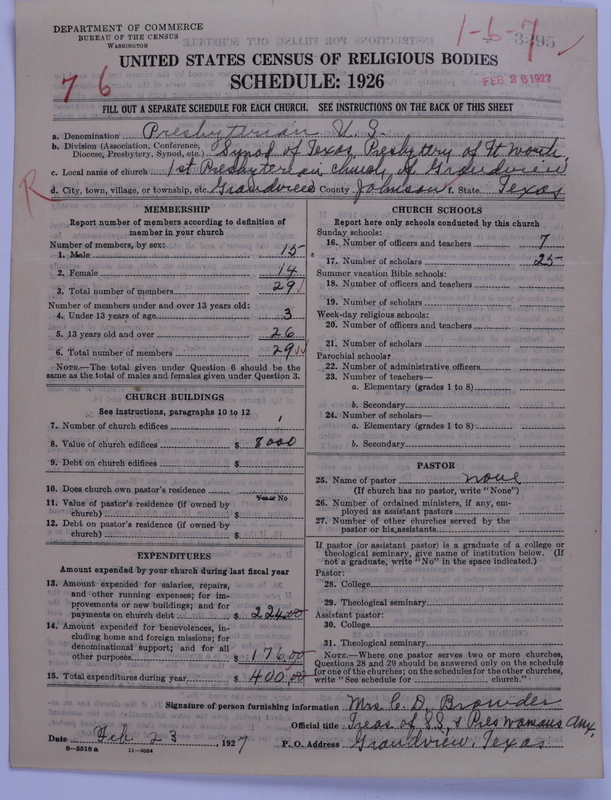 DEPARTMENT OF COMMERCE
BUREAU OF THE CENSUS
WASHINGTON
1-6-7
3295
UNITED STATES CENSUS OF RELIGIOUS BODIES
SCHEDULE: 1926
7 6
FEB 26 1927
FILL OUT A SEPARATE SCHEDULE FOR EACH CHURCH. SEE INSTRUCTIONS ON THE BACK OF THIS SHEET
a. Denomination Presbyterian U.S.
b. Division (Association, Conference, Diocese, Presbytery, Synod, etc.) Synod of Texas, Presbytery of Ft Worth,
c. Local name of church 1st Presbyterian church of Grandview
R
d. City, town, village, or township, etc. Grandview County Johnson f. State Texas
MEMBERSHIP
Report number of members according to definition of
member in your church
Number of members, by sex:
1. Male 15
2. Female 14
3. Total number of members 29
Number of members under and over 13 years old:
4. Under 13 years of age 3
5. 13 years old and over 26
6. Total number of members 29
NOTE.—The total given under Question 6 should be the
same as the total of males and females given under Question 3.
CHURCH BUILDINGS
See instructions, paragraphs 10 to 12
7. Number of church edifices 1
8. Value of church edifices $ 8000
9. Debt on church edifices $
10. Does church own pastor's residence
Yes or No
11. Value of pastor's residence (if owned by
church) $
12. Debt on pastor's residence (if owned by
church) $
EXPENDITURES
Amount expended by your church during last fiscal year
13. Amount expended for salaries, repairs,
and other running expenses; for im-
provements or new buildings; and for
payments on church debt $ 224.00
14. Amount expended for benevolences, in-
cluding home and foreign missions; for
denominational support; and for all
other purposes $ 176.00
15. Total expenditures during year $ 400.00
CHURCH SCHOOLS
Report here only schools conducted by this church
Sunday schools:
16. Number of officers and teachers 7
17. Number of scholars 25
Summer vacation Bible schools:
18. Number of officers and teachers
19. Number of scholars
Week-day religious schools:
20. Number of officers and teachers
21. Number of scholars
Parochial schools:
22. Number of administrative officers
23. Number of teachers—
a. Elementary (grades 1 to 8)
b. Secondary
24. Number of scholars—
a. Elementary (grades 1 to 8)
b. Secondary
PASTOR
25. Name of pastor none
(If church has no pastor, write "None")
26. Number of ordained ministers, if any, em-
ployed as assistant pastors
27. Number of other churches served by the
pastor or his assistants
If pastor (or assistant pastor) is a graduate of a college or
theological seminary, give name of institution below. (If
not a graduate, write "No" in the space indicated.)
Pastor:
28. College
29. Theological seminary
Assistant pastor:
30. College
31. Theological seminary
NOTE.—Where one pastor serves two or more churches,
Questions 28 and 29 should be answered only on the schedule
for one of the churches; on the schedules for the other churches,
write "See schedule for church."
Signature of person furnishing information Mrs C. D. Browder
Official title Treas of S.S. & Pres Womans Aux,
Date Feb 23, 1927 P. O. Address Grandview, Texas
8—5518 a 11—9084